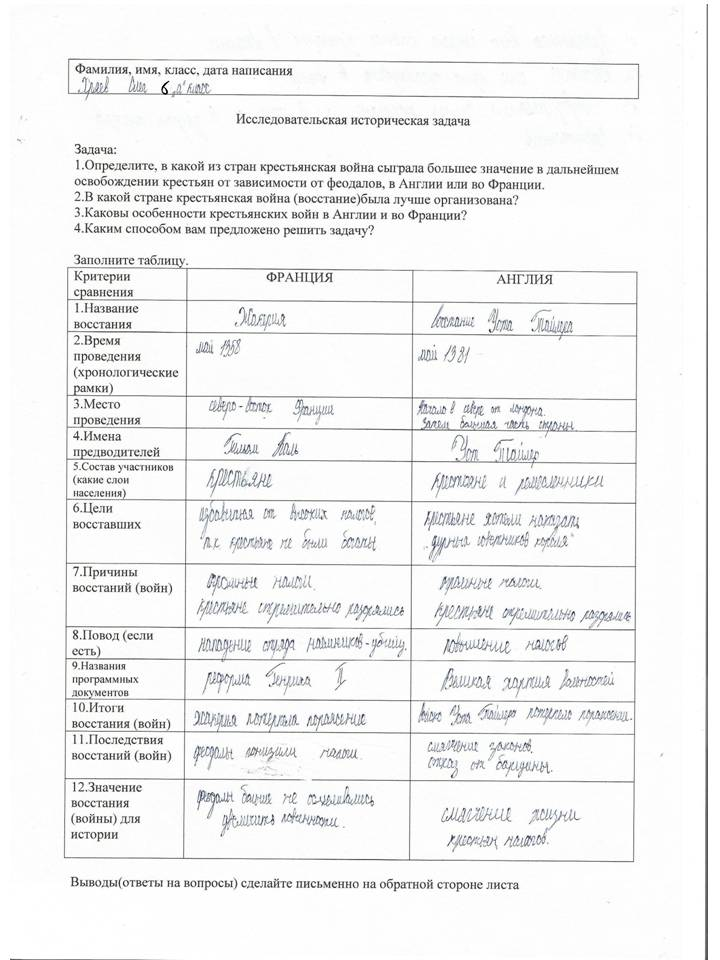 Фамилия, имя, класс, дата написания
Олег 6 "А" класс
Исследовательская историческая задача
Задача:
1.Определите, в какой из стран крестьянская война сыграла большее значение в дальнейшем
освобождении крестьян от зависимости от феодалов, в Англии или во Франции.
2.В какой стране крестьянская война (восстание)была лучше организована?
3.Каковы особенности крестьянских войн в Англии и во Франции?
4.Каким способом вам предложено решить задачу?
Заполните таблицу.
Критерии
сравнения
ФРАНЦИЯ
АНГЛИЯ
1.Название
восстания
Жакерия
Восстание Уота Тайлера
2.Время
проведения
(хронологические
рамки)
май 1358
май 1381
3.Место
проведения
северо-восток Франции
Начало в севере от Лондона.
Затем большая часть страны.
4.Имена
предводителей
Гильом Каль
Уот Тайлер
5.Состав участников
(какие слои
населения)
Крестьяне
Крестьяне и ремесленники
6.Цели
восставших
от высоких налогов,
т.к. крестьяне не были богаты
Крестьяне хотели наказать
„дурных советников короля“
7.Причины
восстаний (войн)
огромные налоги.
Крестьяне стремительно
огромные налоги.
Крестьяне стремительно
8.Повод (если
есть)
нападение отряда наёмников-убийц.
повышение налогов
9.Названия
программных
документов
реформа Генриха II
Великая хартия вольностей
10.Итоги
восстания (войн)
Жакерия потерпела поражение
Уота Тайлера потерпело поражение.
11.Последствия
восстаний (войн)
феодалы понизили налоги
смягчение законов.
отказ от барщины.
12.Значение
восстания
(войны) для
истории
феодалы больше не осмеливались
увеличить повинности.
смягчение жизни
крестьян налогов.
Выводы(ответы на вопросы) сделайте письменно на обратной стороне листа